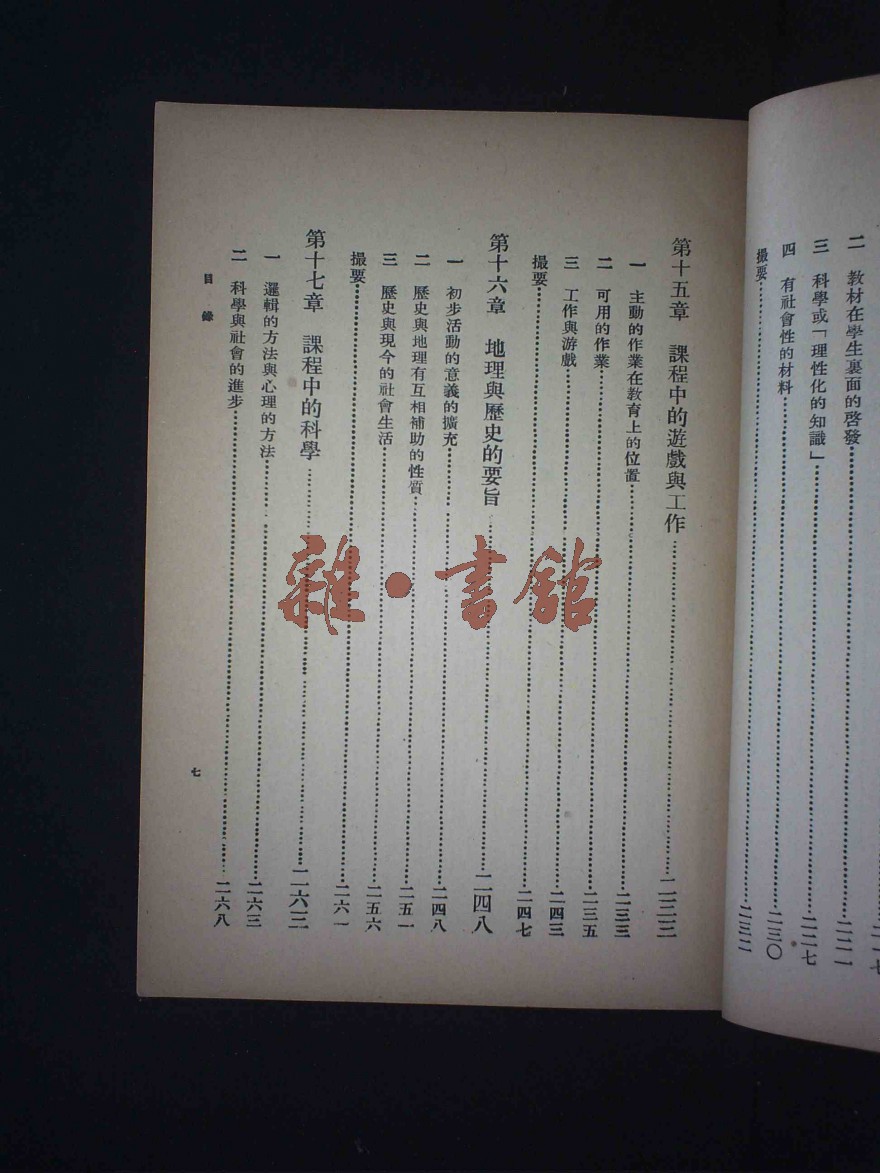 二 教材在學生裏面的啓發……二二一
三 科學或「理性化的知識」……二二七
四 有社會性的材料……二三〇
撮要……二三二
第十五章 課程中的遊戲與工作……二三三
一 主動的作業在教育上的位置……二三三
二 可用的作業……二三五
三 工作與游戲……二四三
撮要……二四七
第十六章 地理與歷史的要旨……二四八
一 初步活動的意義的擴充……二四八
二 歷史與地理有互相補助的性質……二五一
三 歷史與現今的社會生活……二五六
撮要……二六一
第十七章 課程中的科學……二六三
一 邏輯的方法與心理的方法……二六三
二 科學與社會的進步……二六八
目錄
七
雜·書館